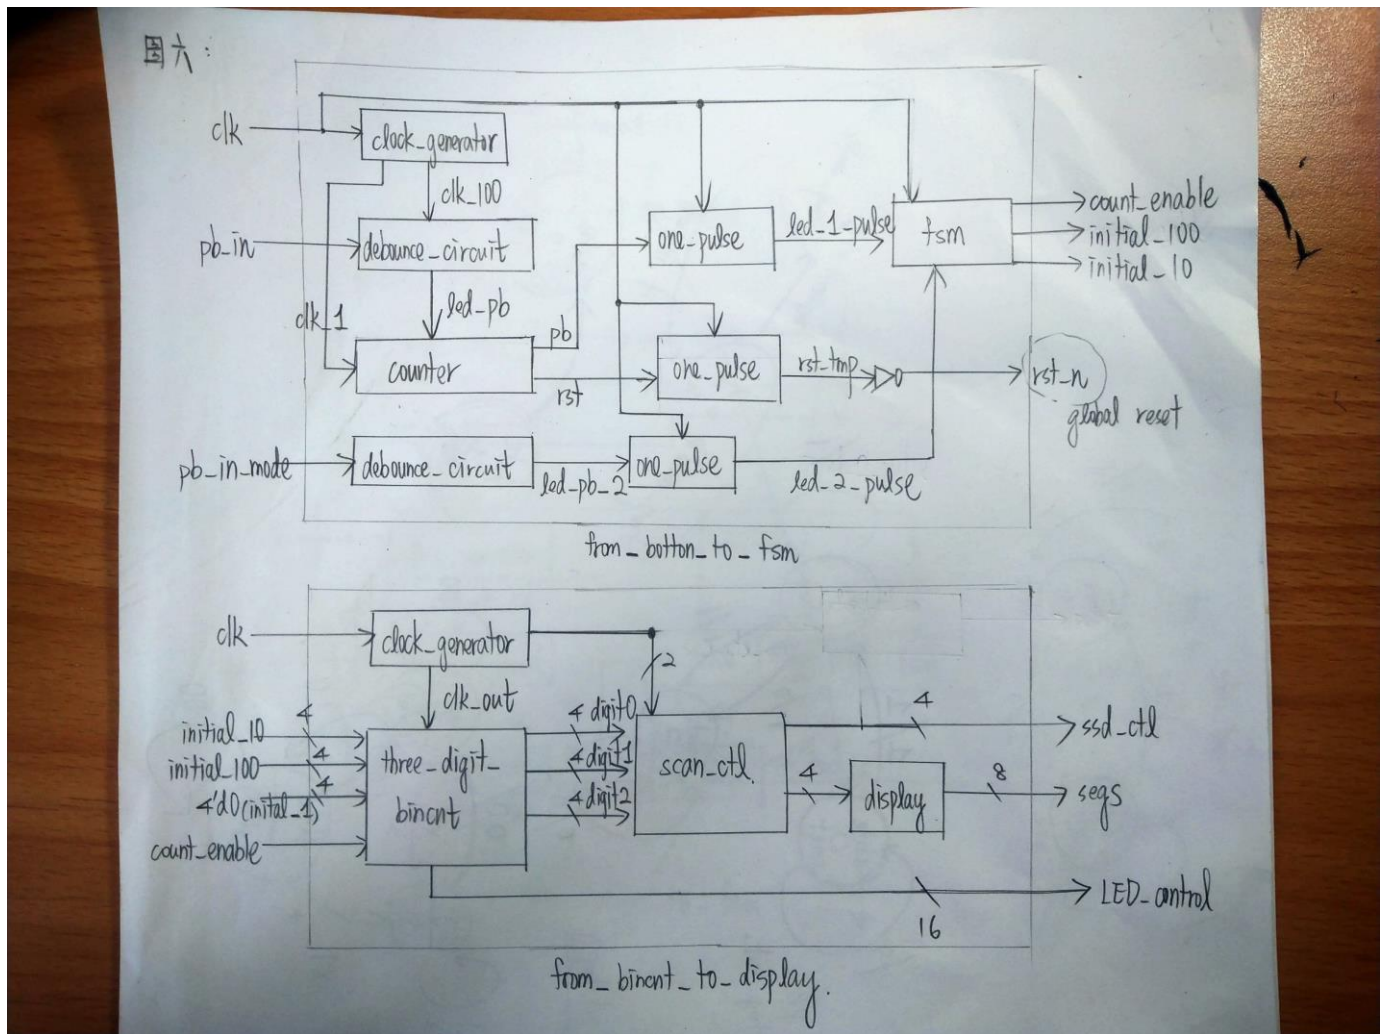 圖六：
clk
clock_generator
clk_100
pb_in
debounce_circuit
one_pulse
led_1_pulse
fsm
count_enable
initial_100
initial_10
clk_1
led_pb
pb
counter
rst
one_pulse
rst_tmp
rst_n
global reset
pb_in_mode
debounce_circuit
led_pb_2
one_pulse
led_2_pulse
from_botton_to_fsm
clk
clock_generator
2
clk_out
initial_10
4
initial_100
4
4'd0(inital_1)
4
count_enable
three_digit_
bincnt
4 digit0
4 digit1
4 digit2
scan_ctl.
4
ssd_ctl
4
display
8
segs
16
LED_control
from_bincnt_to_display.